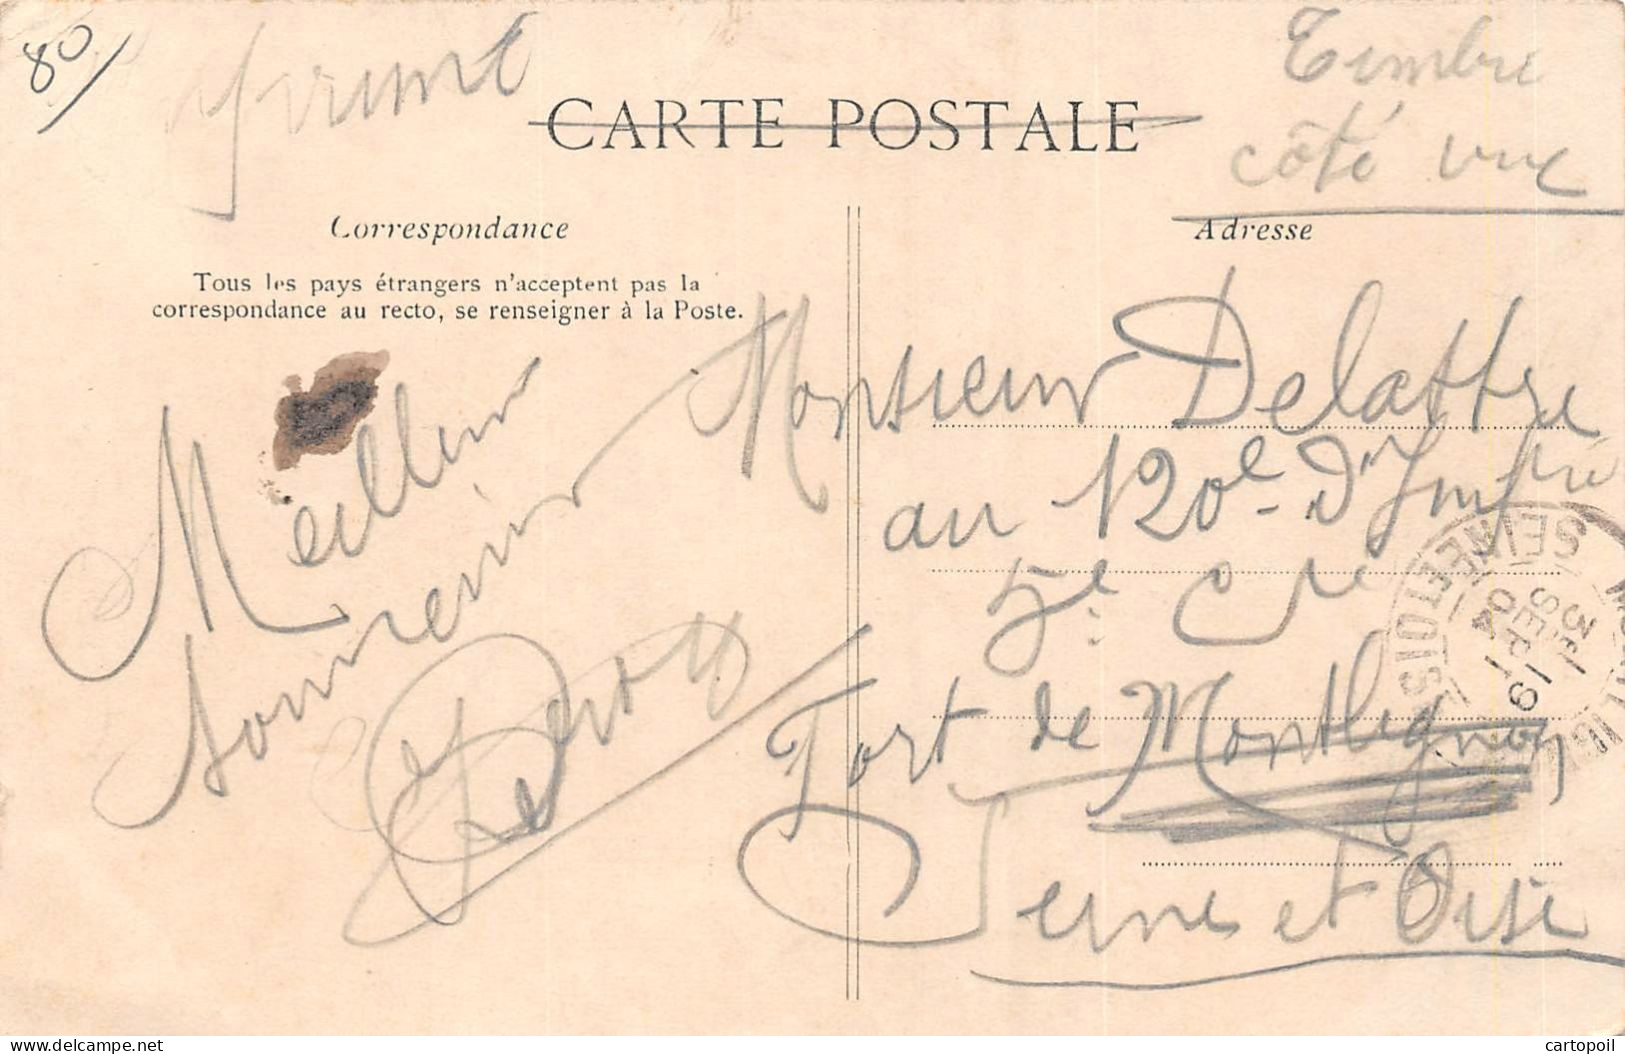 80
Timbre
côté vue
CARTE POSTALE
Correspondance
Adresse
Tous les pays étrangers n'acceptent pas la
correspondance au recto, se renseigner à la Poste.
Meilleur
Souvenir
Monsieur Delattre
au 120e d'Infrie
5e Cie
Fort de Montlignon
Seine et Oise
SEINE-ET-OISE
3e / 19
SEPT
04
cartopoil